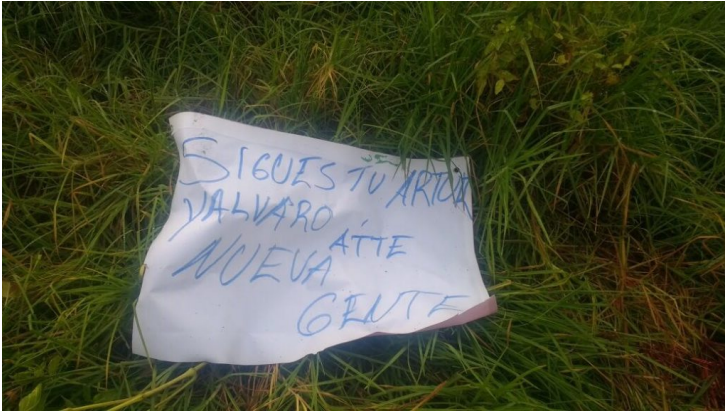 SIGUES TU ARTURO
Y ALVARO
ATTE
NUEVA
GENTE